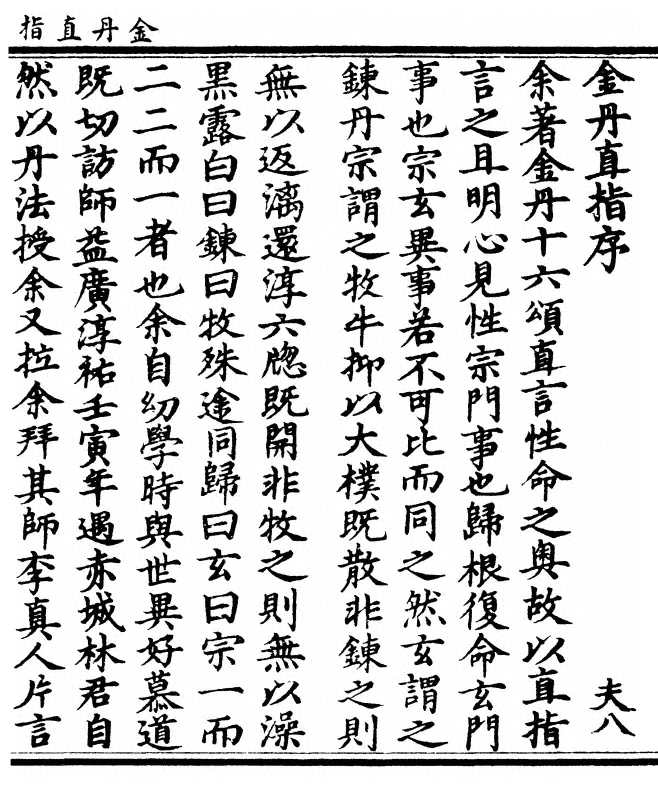 金丹直指
金丹直指序
夫八
余著金丹十六頌直言性命之奥故以直指
言之且明心見性宗門事也歸根復命玄門
事也宗玄異事若不可比而同之然玄謂之
鍊丹宗謂之牧牛抑以大樸既散非鍊之則
無以返漓還淳六牕既開非牧之則無以澡
黑露白曰鍊曰牧殊途同歸曰玄曰宗一而
二二而一者也余自幼學時與世異好慕道
既切訪師益廣淳祐壬寅年遇赤城林君自
然以丹法授余又拉余拜其師李真人片言